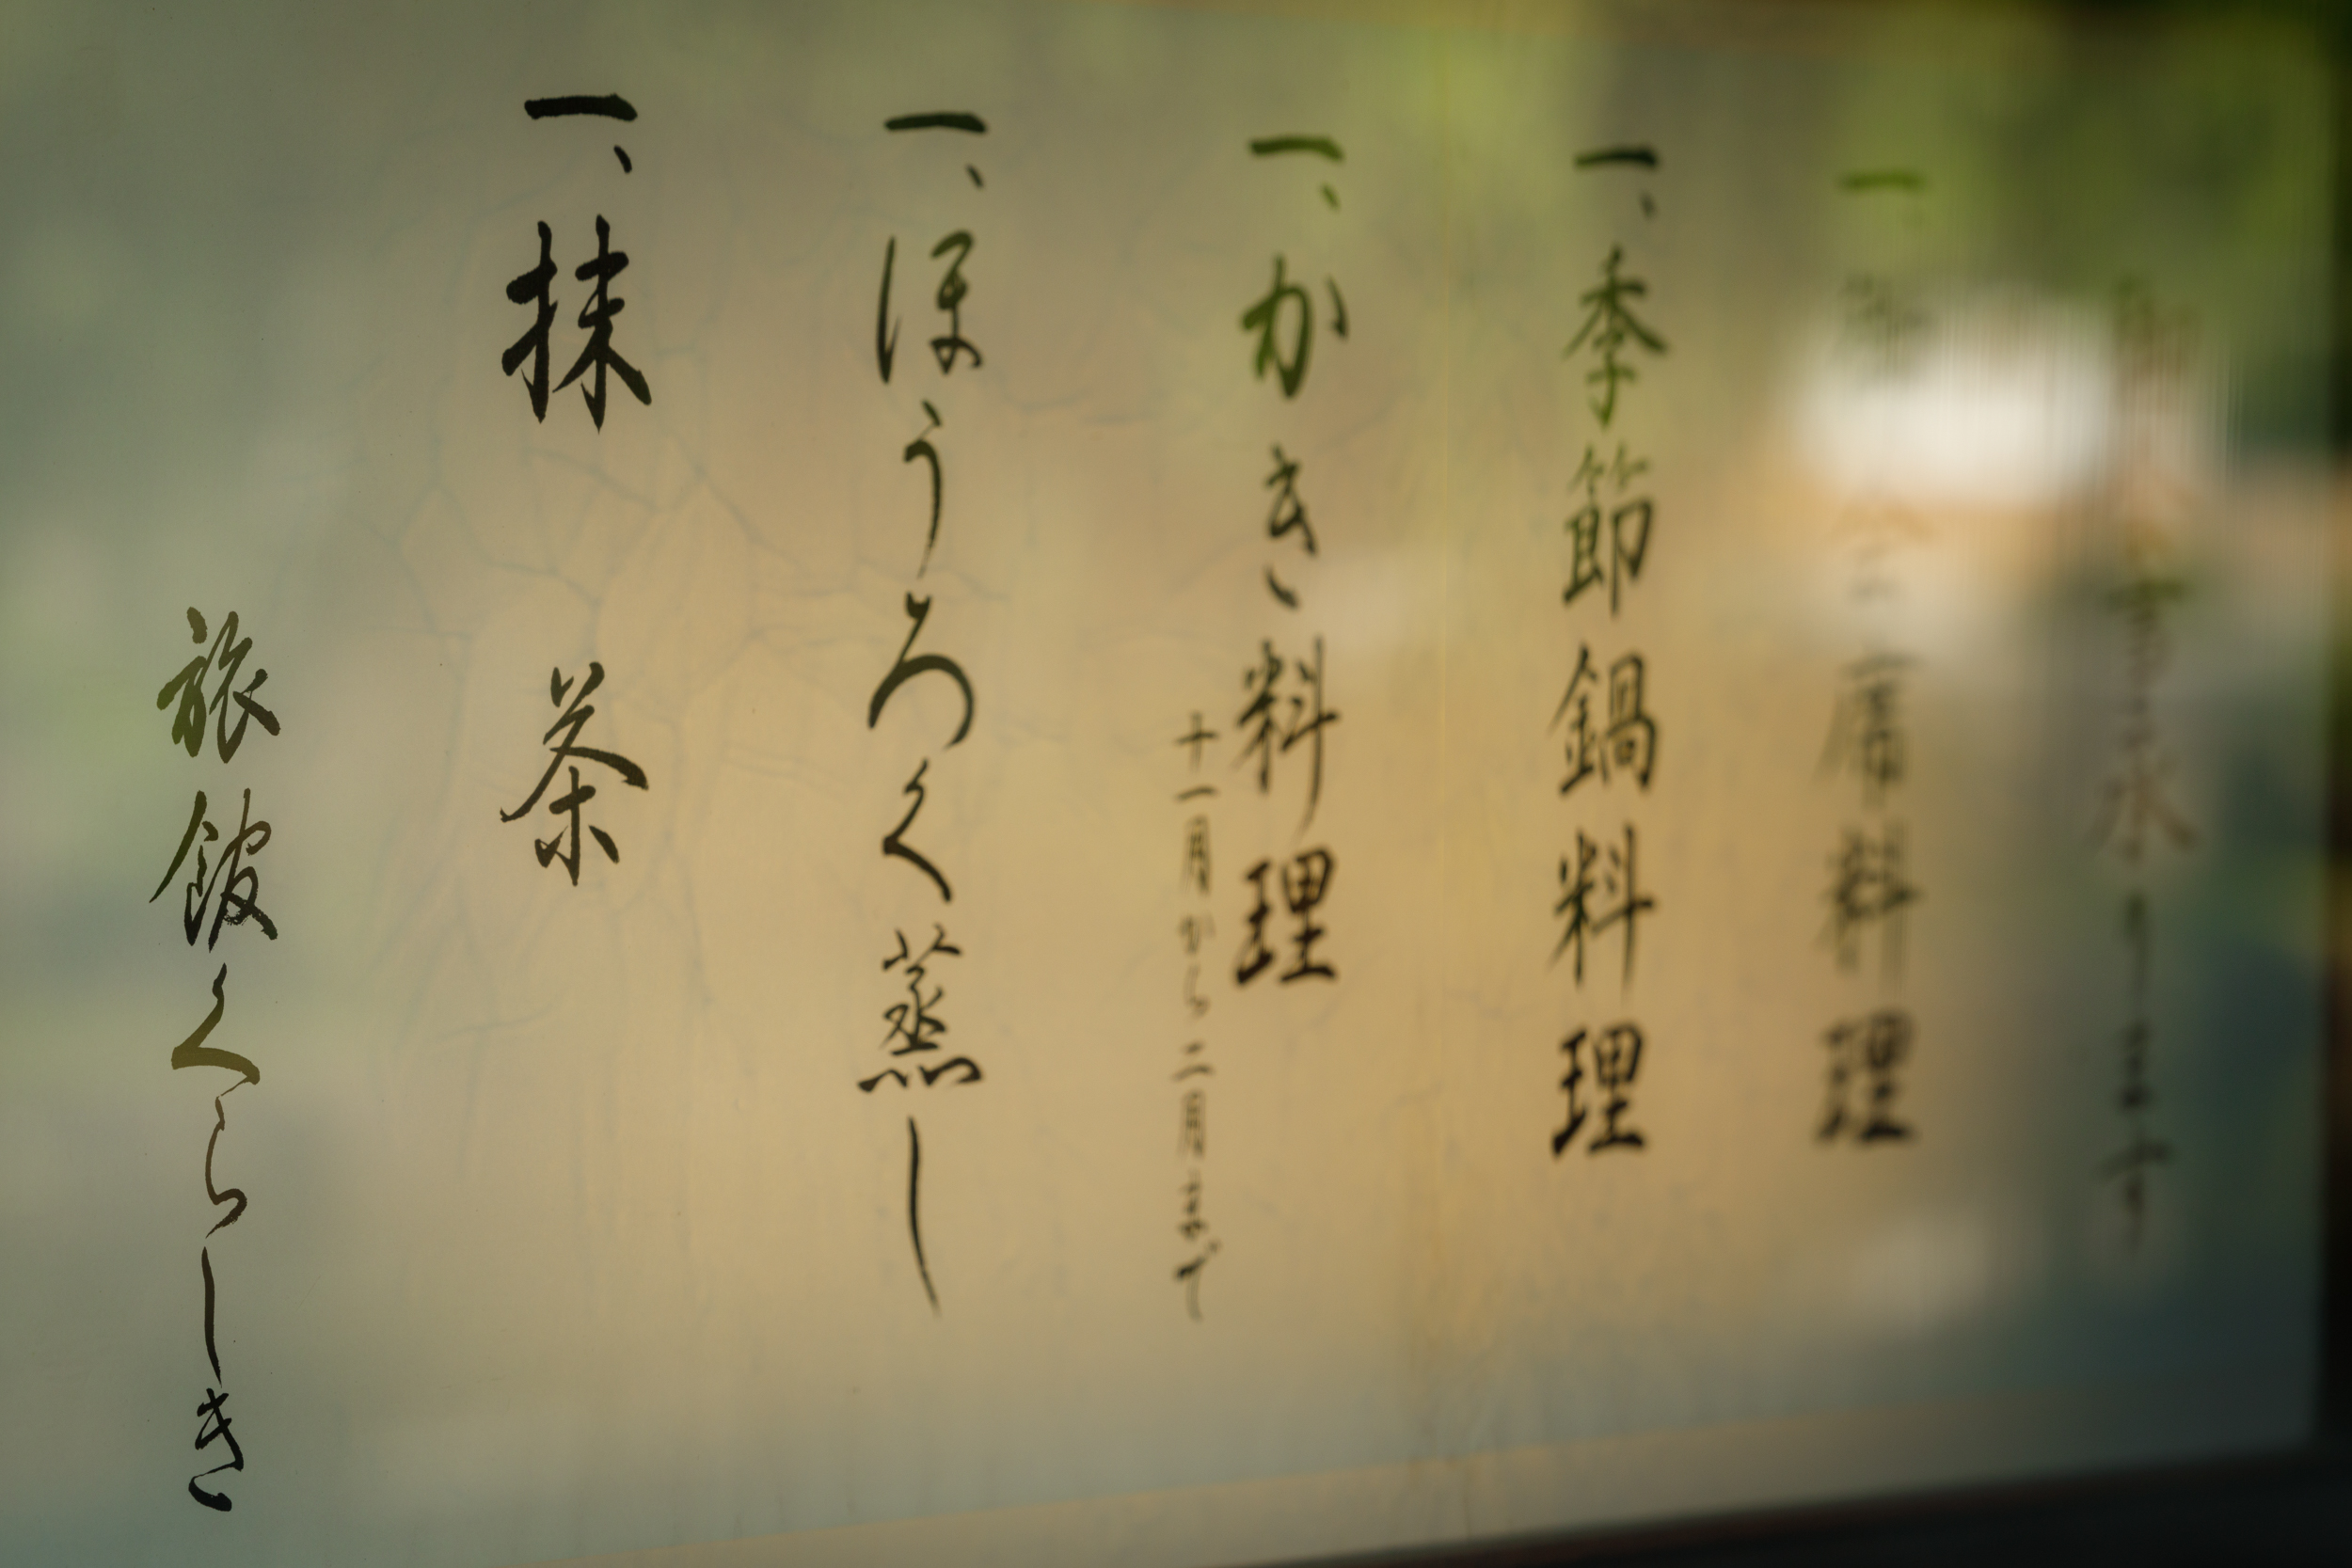 一、席料理
一、季節鍋料理
一、かき料理
十一月から二月まで
一、ほうろく蒸し
一、抹茶
旅館くらしき